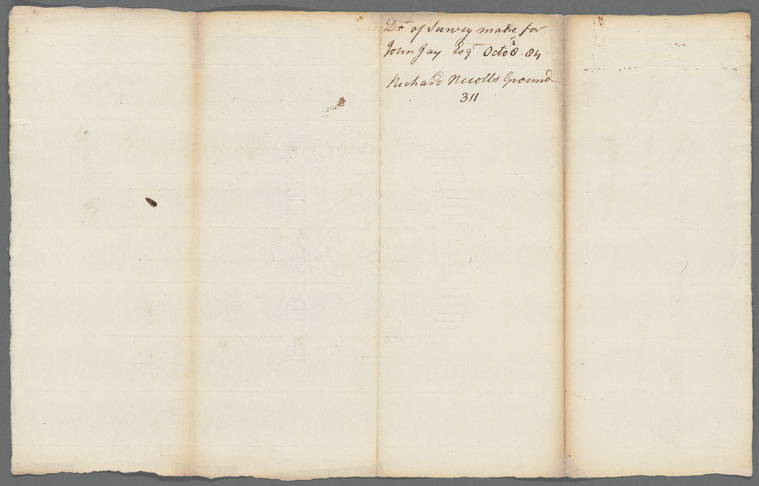 Dr. of Survey made for
John Jay Esqr Octor 8. 84
Richard Nicolls Ground
311